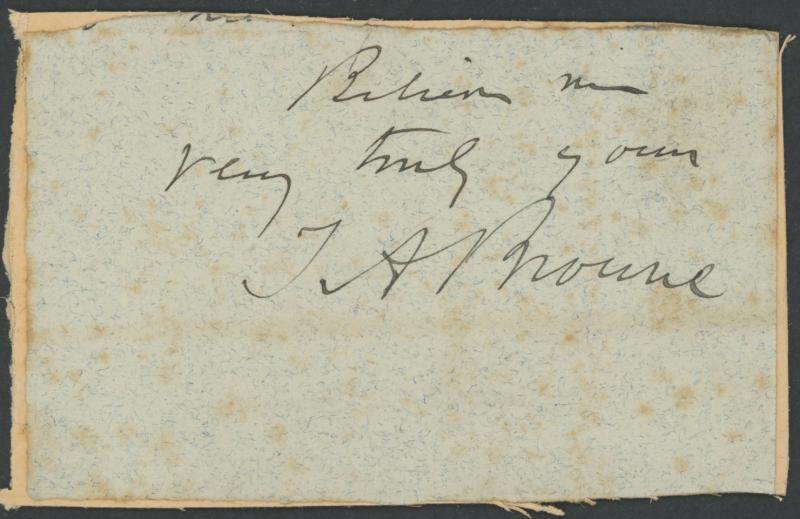 Believe me
very truly yours
T A Browne